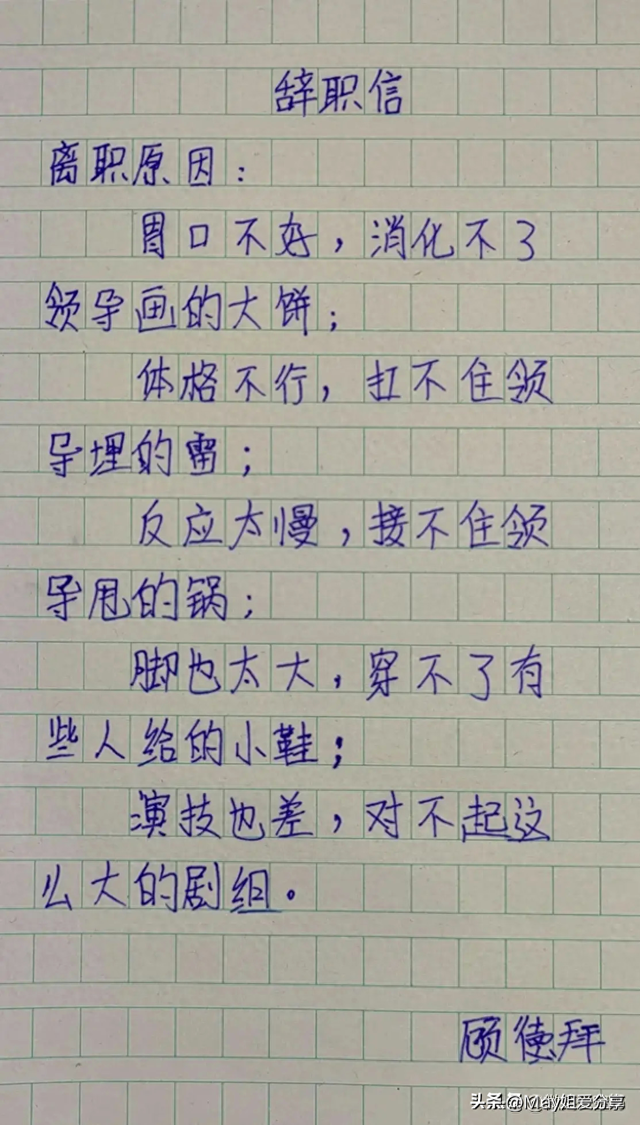 辞职信
离职原因：
胃口不好，消化不了
领导画的大饼；
体格不行，扛不住领
导埋的雷；
反应太慢，接不住领
导甩的锅；
脚也太大，穿不了有
些人给的小鞋；
演技也差，对不起这
么大的剧组。
顾德拜
头条 @May姐爱分享